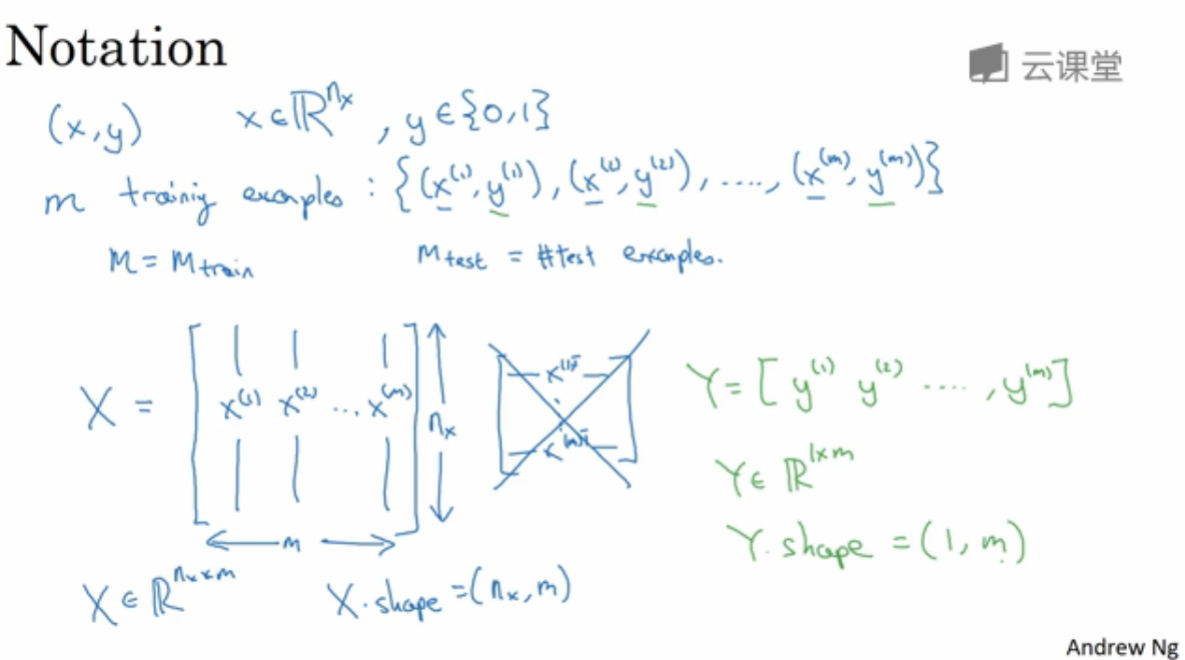 Notation
云课堂
(x,y) x∈ℝ^{n_x}, y∈{0,1}
m training examples: {(x^{(1)}, y^{(1)}), (x^{(2)}, y^{(2)}), ...., (x^{(m)}, y^{(m)})}
M = M_{train} M_{test} = #test examples.
X = [ x^{(1)} x^{(2)} ... x^{(m)} ] n_x
m
x^{(1)T}
x^{(m)T}
Y = [ y^{(1)} y^{(2)} ...., y^{(m)} ]
Y∈ℝ^{1×m}
Y.shape = (1, m)
X∈ℝ^{n_x×m} X.shape = (n_x, m)
Andrew Ng